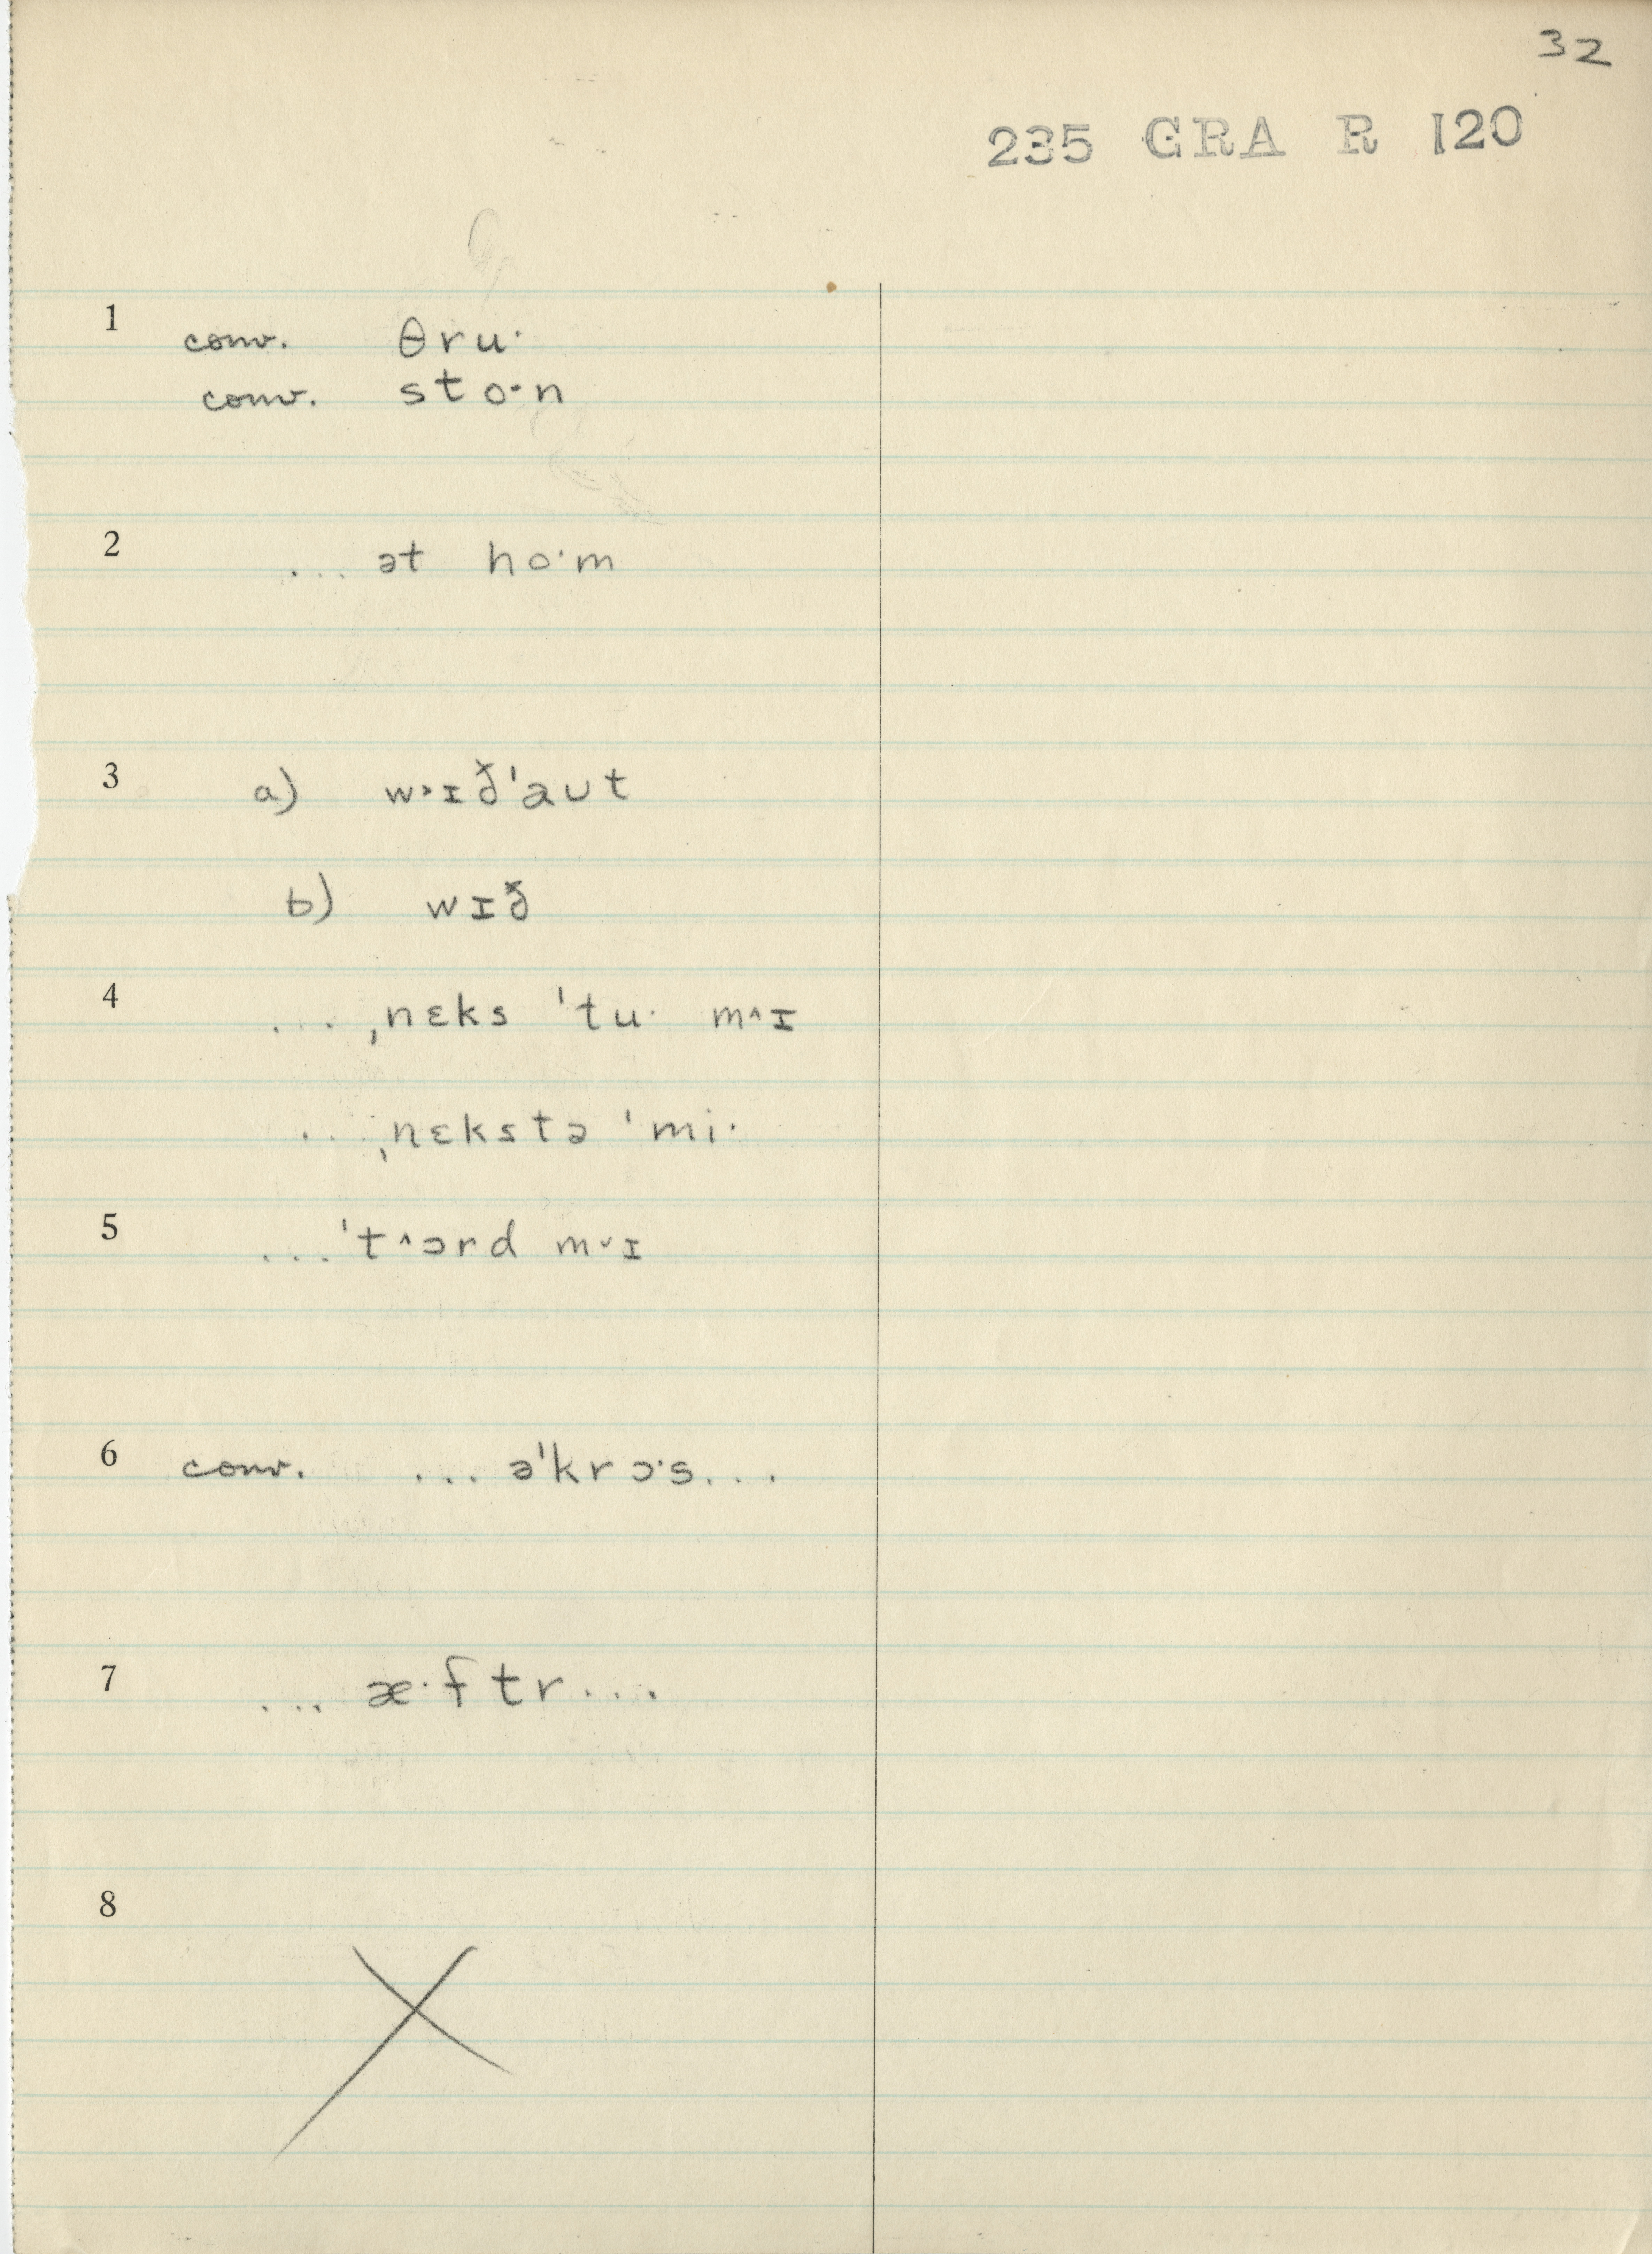 32
235 GRA R 120
1 conv. θru·
conv. sto·n
2 ... ət ho·m
3 a) w˃ɪð'aʊt
b) wɪð
4 ... ˌnɛks 'tu· m˄ɪ
... ˌnɛkstə 'mi·
5 ... 't˄ɔrd m˅ɪ
6 conv. ... ə'krɔ·s...
7 ... æ·ftr...
8